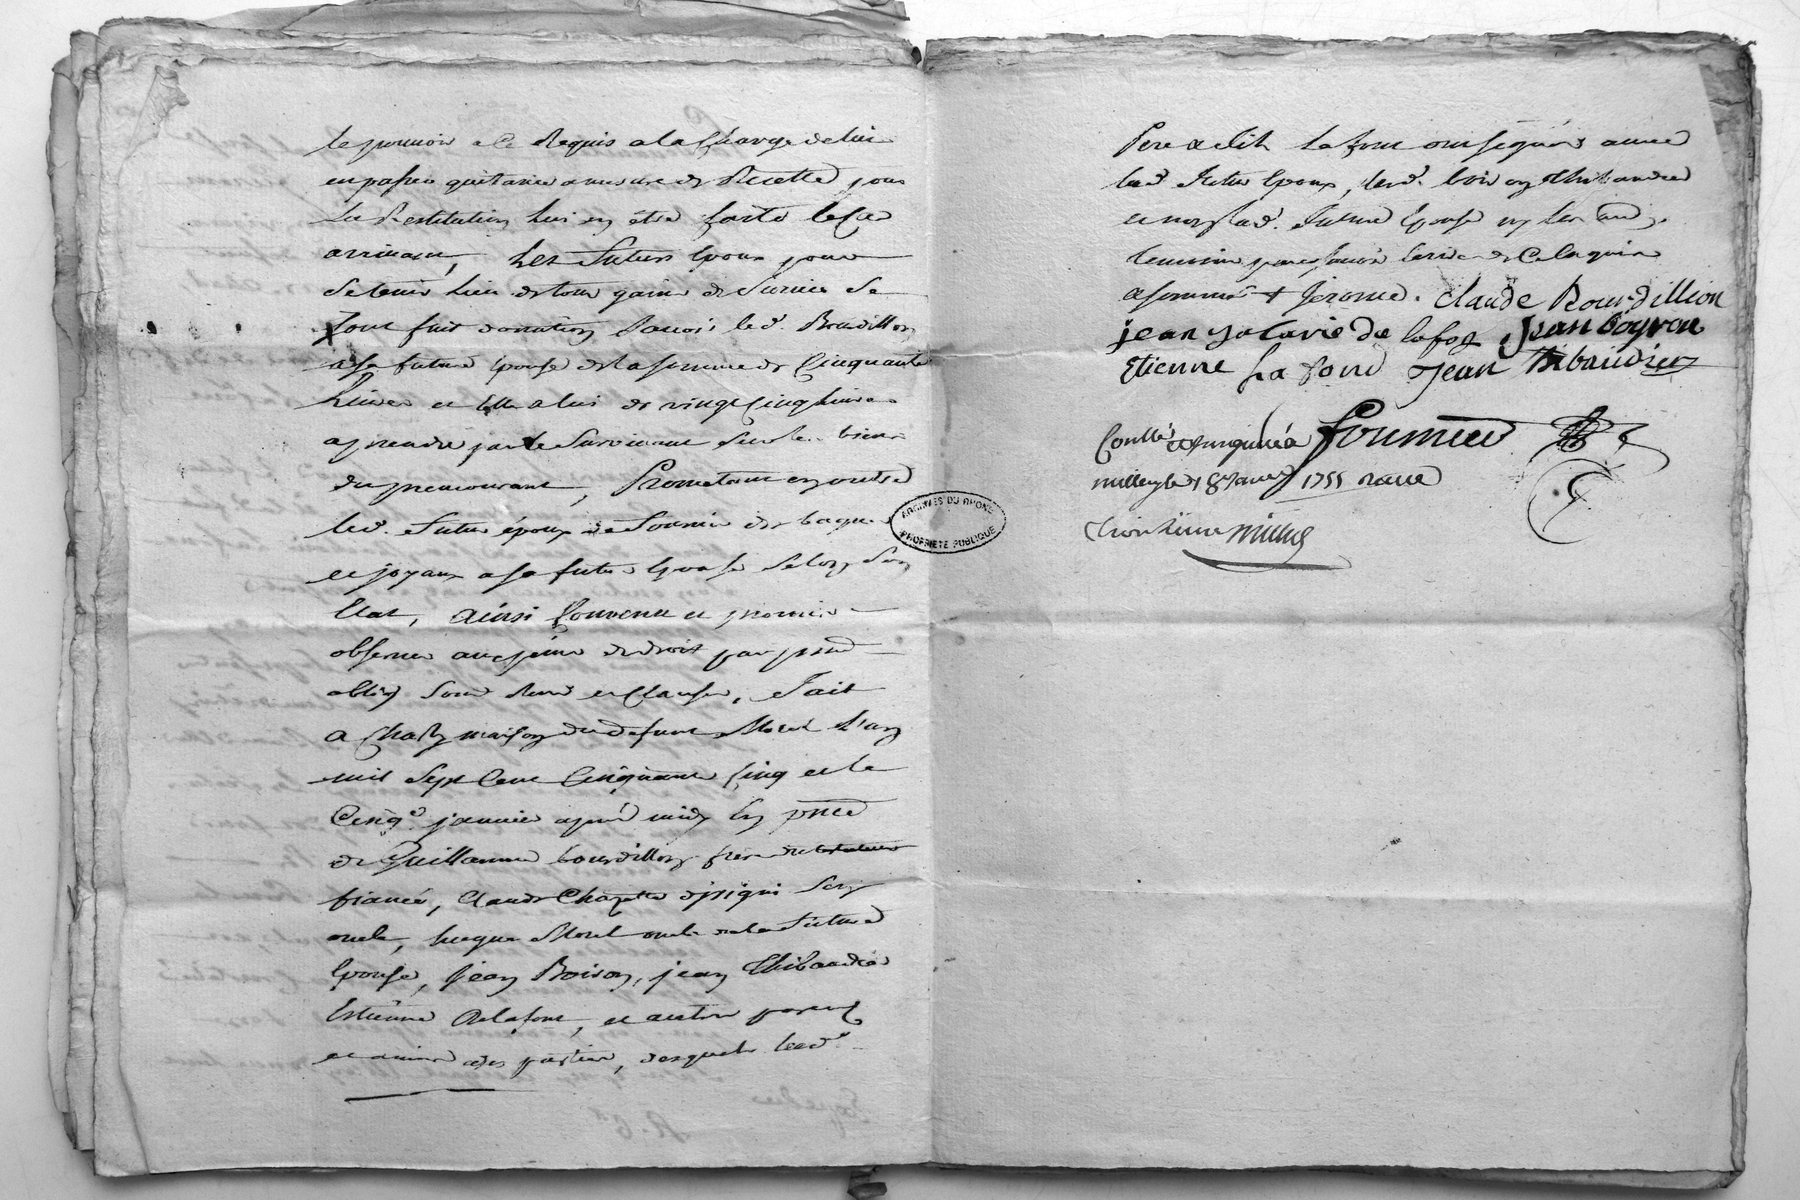 le pouvoir a ce Requis a la Charge de lui
en passer quittance a mesure de Recette pour
La Restitution lui en être faite le Cas
arrivant, Les futurs Epoux pour
se tenir lieu de tous gains de Survie se
sont fait donation Savoir led. Bourdillon
a sa future épouse de la somme de Cinquante
Livres et Elle a lui de vingt Cinq Livres
a prendre par le Survivant sur les biens
du premourant, Promettant en outre
led. futur époux de fournir des bagues
et joyaux a sa future Epouse selon son
Etat, ainsi Convenu et promis
observer aux peine de droit par
oblig. soum. Renon. et Clauses, fait
a Charly maison du défunt Morel L'an
mil Sept Cent Cinquante Cinq et le
Cinq janvier après midy En pnce
de Guillaume bourdillon frere du
fiancé, Claude Chapotte d'irigni son
oncle, Morel oncle de la future
Epouse, jean Boiron, jean Thibaudier
Estienne Delafont, et autres parens
et amis des parties, desquels led.
Pere et lafont ont signés avec
led. futur Epoux, lesd. boiron Thibaudier
et non lad. future Epouse ny les autres
temoins pour ne savoir écrire de Ce Enquis
et sommés + Jerome. Claude Bourdillion
jean de lafon Jean boyron
Etienne La fond Jean Thibaudier
Conllé et insinué a fournier
millery le 18 janv. 1755 Reçu
trois livres
ARCHIVES DU RHONE
PROPRIÉTÉ PUBLIQUE